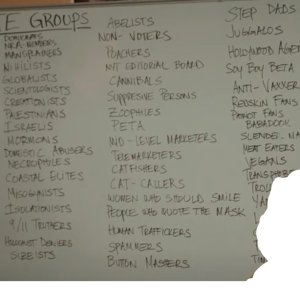 E GROUPS
NRA-MEMBERS
MANSPLAINERS
NIHILISTS
GLOBALISTS
SCIENTOLOGISTS
CREATIONISTS
PALESTINIANS
ISRAELIS
MORMONS
DOMESTIC ABUSERS
NECROPHILES
COASTAL ELITES
MISOGYNISTS
ISOLATIONISTS
9/11 TRUTHERS
HOLOCAUST DENIERS
SIZEISTS
ABELISTS
NON-VOTERS
POACHERS
NYT EDITORIAL BOARD
CANNIBALS
SUPPRESIVE PERSONS
ZOOPHILES
PETA
MID-LEVEL MARKETERS
TELEMARKETERS
CATFISHERS
CAT-CALLERS
WOMEN WHO SHOULD SMILE
PEOPLE WHO QUOTE THE MASK
HUMAN TRAFFICKERS
SPAMMERS
BUTTON MASHERS
STEP DADS
JUGGALOS
HOLLYWOOD AGEN
SOY BOY BETA
ANTI-VAXXER
REDSKIN FANS
PARROT FANS
BABADOOK
SLENDER MA
MEAT EATERS
VEGANS
TRANSPHOB
TROLL